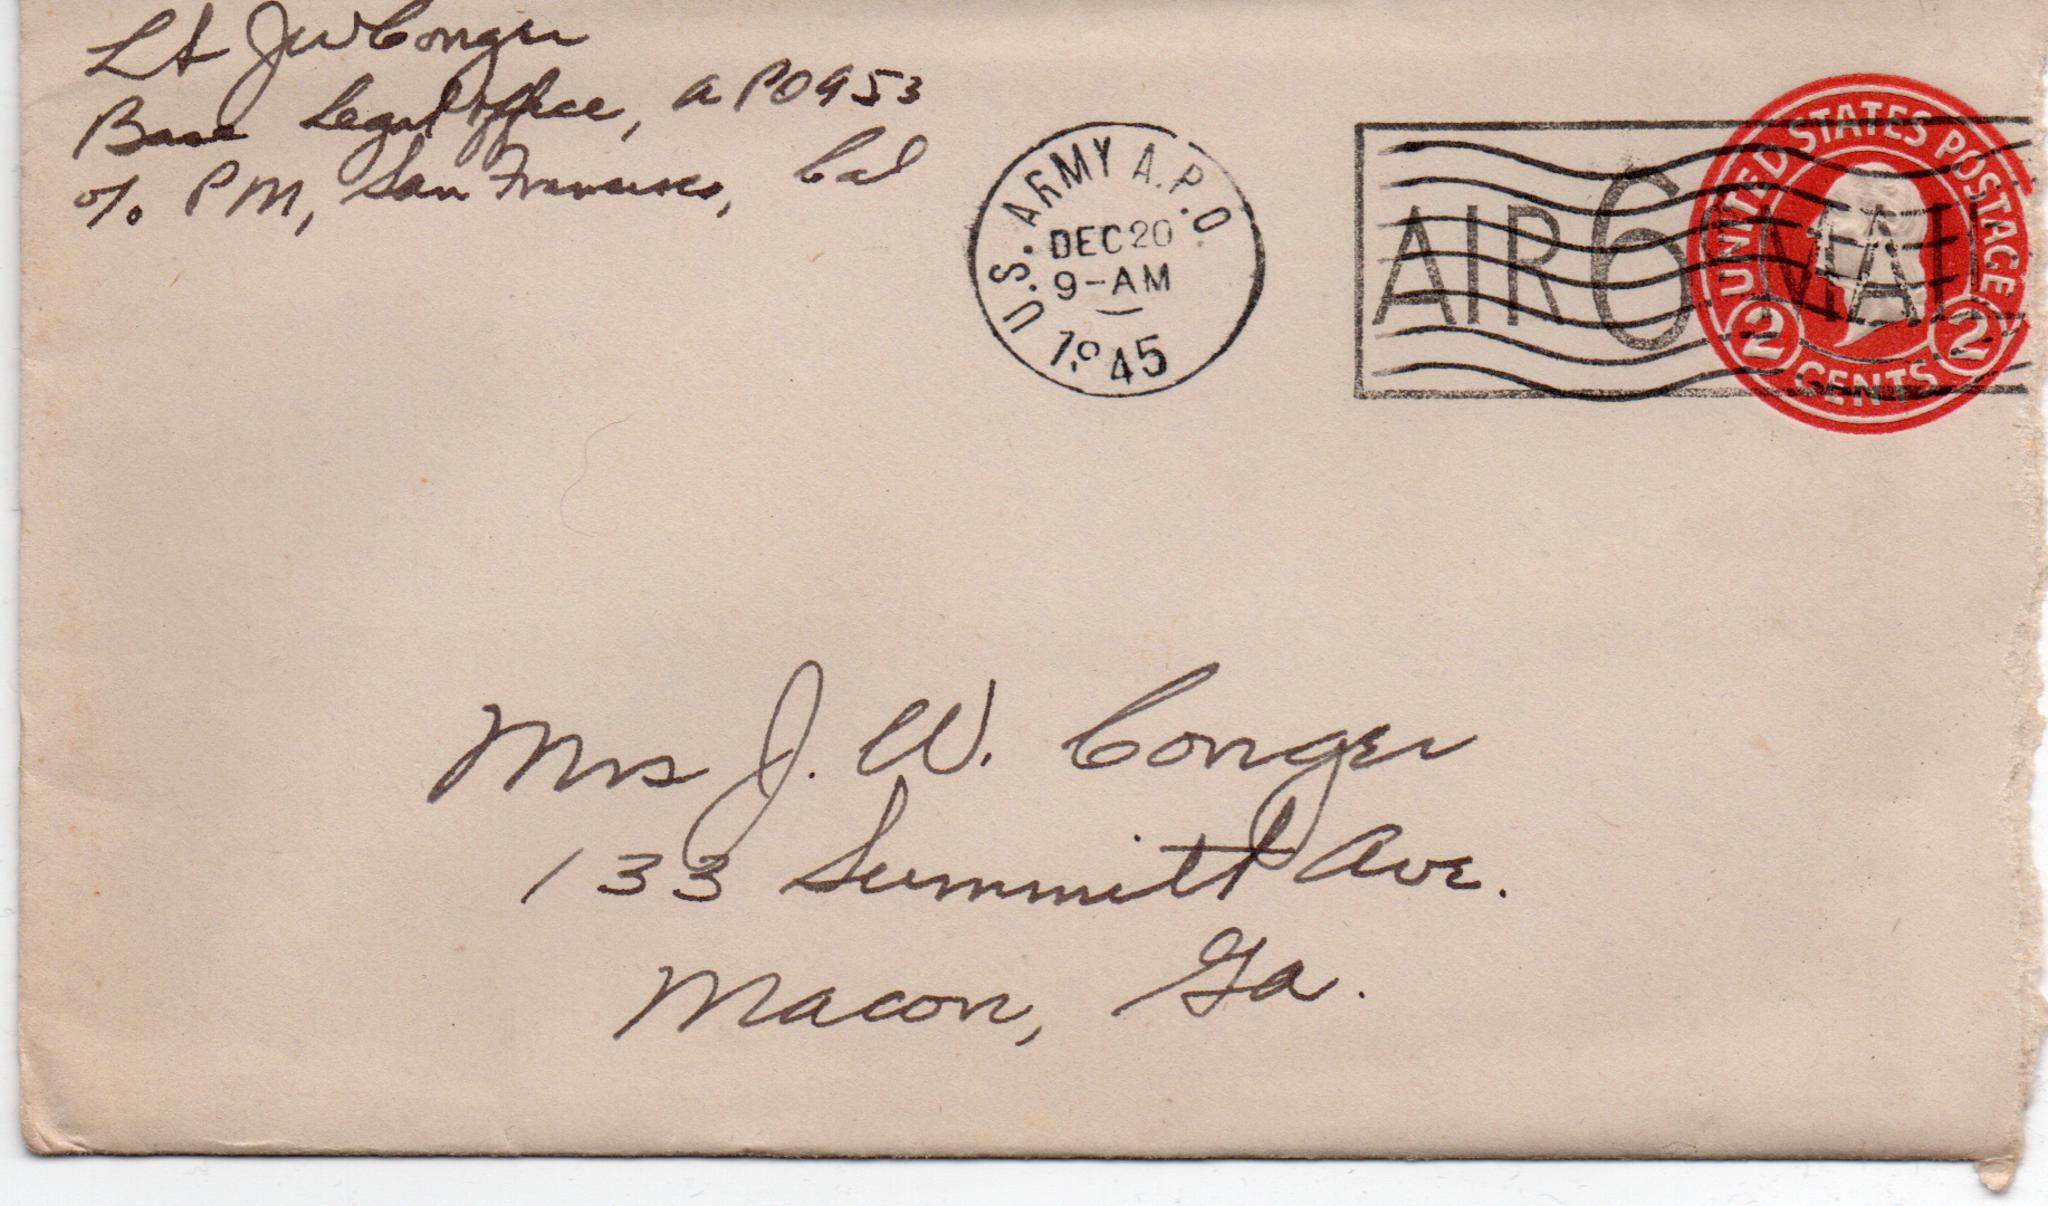 Lt JW Conger
Base Legal Office, APO 953
c/o PM, San Francisco, Cal
U.S. ARMY A.P.O.
DEC 20
9-AM
1945
AIR 6 MAIL
UNITED STATES POSTAGE
2 CENTS 2
Mrs J. W. Conger
133 Summitt Ave.
Macon, Ga.